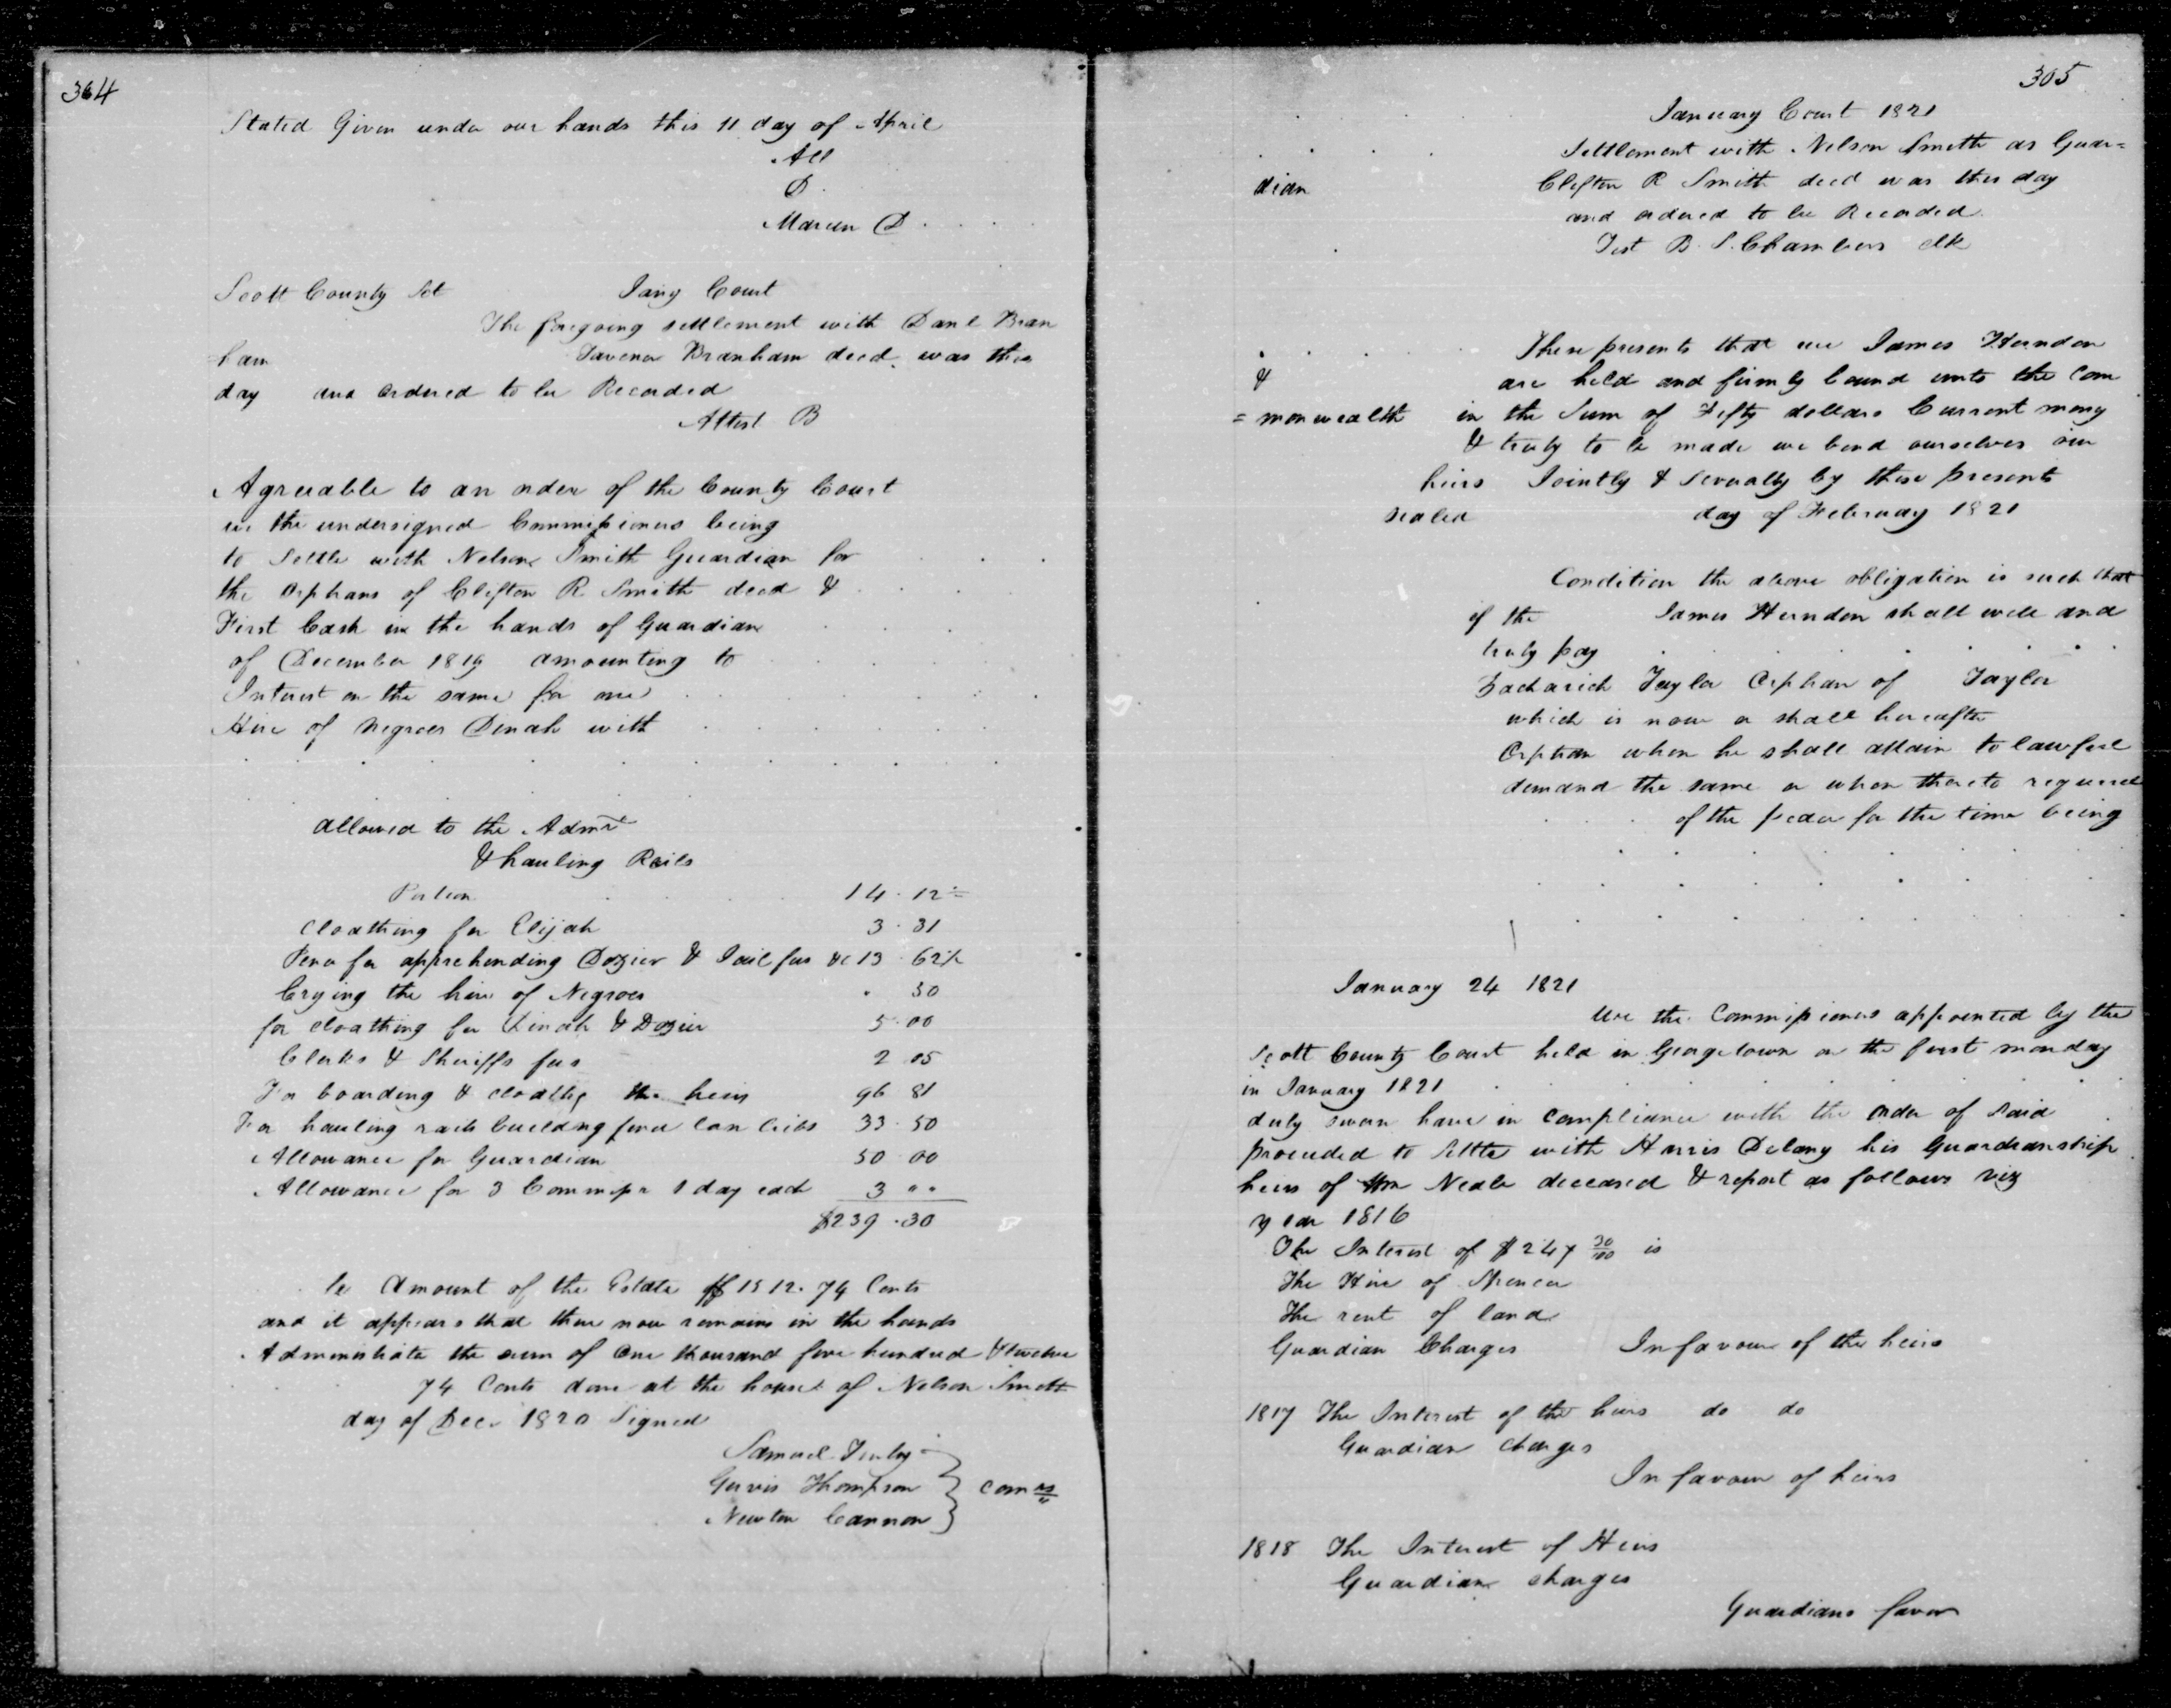 364
Stated Given under our hands this 11 day of April
All
D.
Marcen D
Scott County Sct Jany Court
The foregoing settlement with Danl Bran
ham Tavenor Branham decd. was this
day and ordered to be Recorded
Attest B
Agreeable to an order of the County Court
we the undersigned Commissioners being
to Settle with Nelson Smith Guardian for
the orphans of Clifton R Smith decd &
First Cash in the hands of Guardian
of December 1819 amounting to
Interest on the same for one
Hire of Negroes Dinah with
allowed to the Admr
& hauling Rails
Portion 14.12
Cloathing for Elijah 3.31
for apprehending Dozier & Jail fees &c 13.62½
Crying the hire of Negroes . 50
for cloathing for Dinah & Dozier 5.00
Clerks & Sheriffs fees 2 05
For boarding & cloathg the heirs 96 81
For hauling rails buildng fence 33.50
Allowance for Guardian 50 00
Allowance for 3 Commsrs 1 day each 3 " "
$239.30
Amount of the Estate $1512.74 Cents
and it appears that there now remains in the hands
Administrator the sum of One thousand five hundred & twelve
74 Cents done at the house of Nelson Smith
day of Decr 1820 Signed
Samuel Finley
Gervis Thompson } Comrs
Newton Cannon
305
January Court 1821
Settlement with Nelson Smith as Guar=
dian Clifton R Smith decd was this day
and ordered to be Recorded.
Test B. S. Chambers clk
These presents that we James Herndon
& are held and firmly bound unto the Com
=monwealth in the Sum of Fifty dollars Current mony
& truly to be made we bind ourselves our
heirs Jointly & severally by these presents
sealed day of February 1821
Condition the above obligation is such that
if the James Herndon shall well and
truly pay
Zachariah Taylor Orphan of Taylor
which is now or shall hereafter
Orphan when he shall attain to lawfull
demand the same or when thereto required
of the for the time being
January 24 1821
We the Commissioners appointed by the
Scott County Court held in Georgetown on the first monday
in January 1821
duly sworn have in compliance with the order of said
proceeded to Settle with Harris Delany his Guardianship
heirs of Wm Neale deceased & report as follows viz
year 1816
The Interest of $247 30/100 is
The Hire of Spencer
The rent of land
Guardian Charges In favour of the heirs
1817 The Interest of the heirs do do
Guardian charges
In favour of heirs
1818 The Interest of Heirs
Guardian charges
Guardians favor